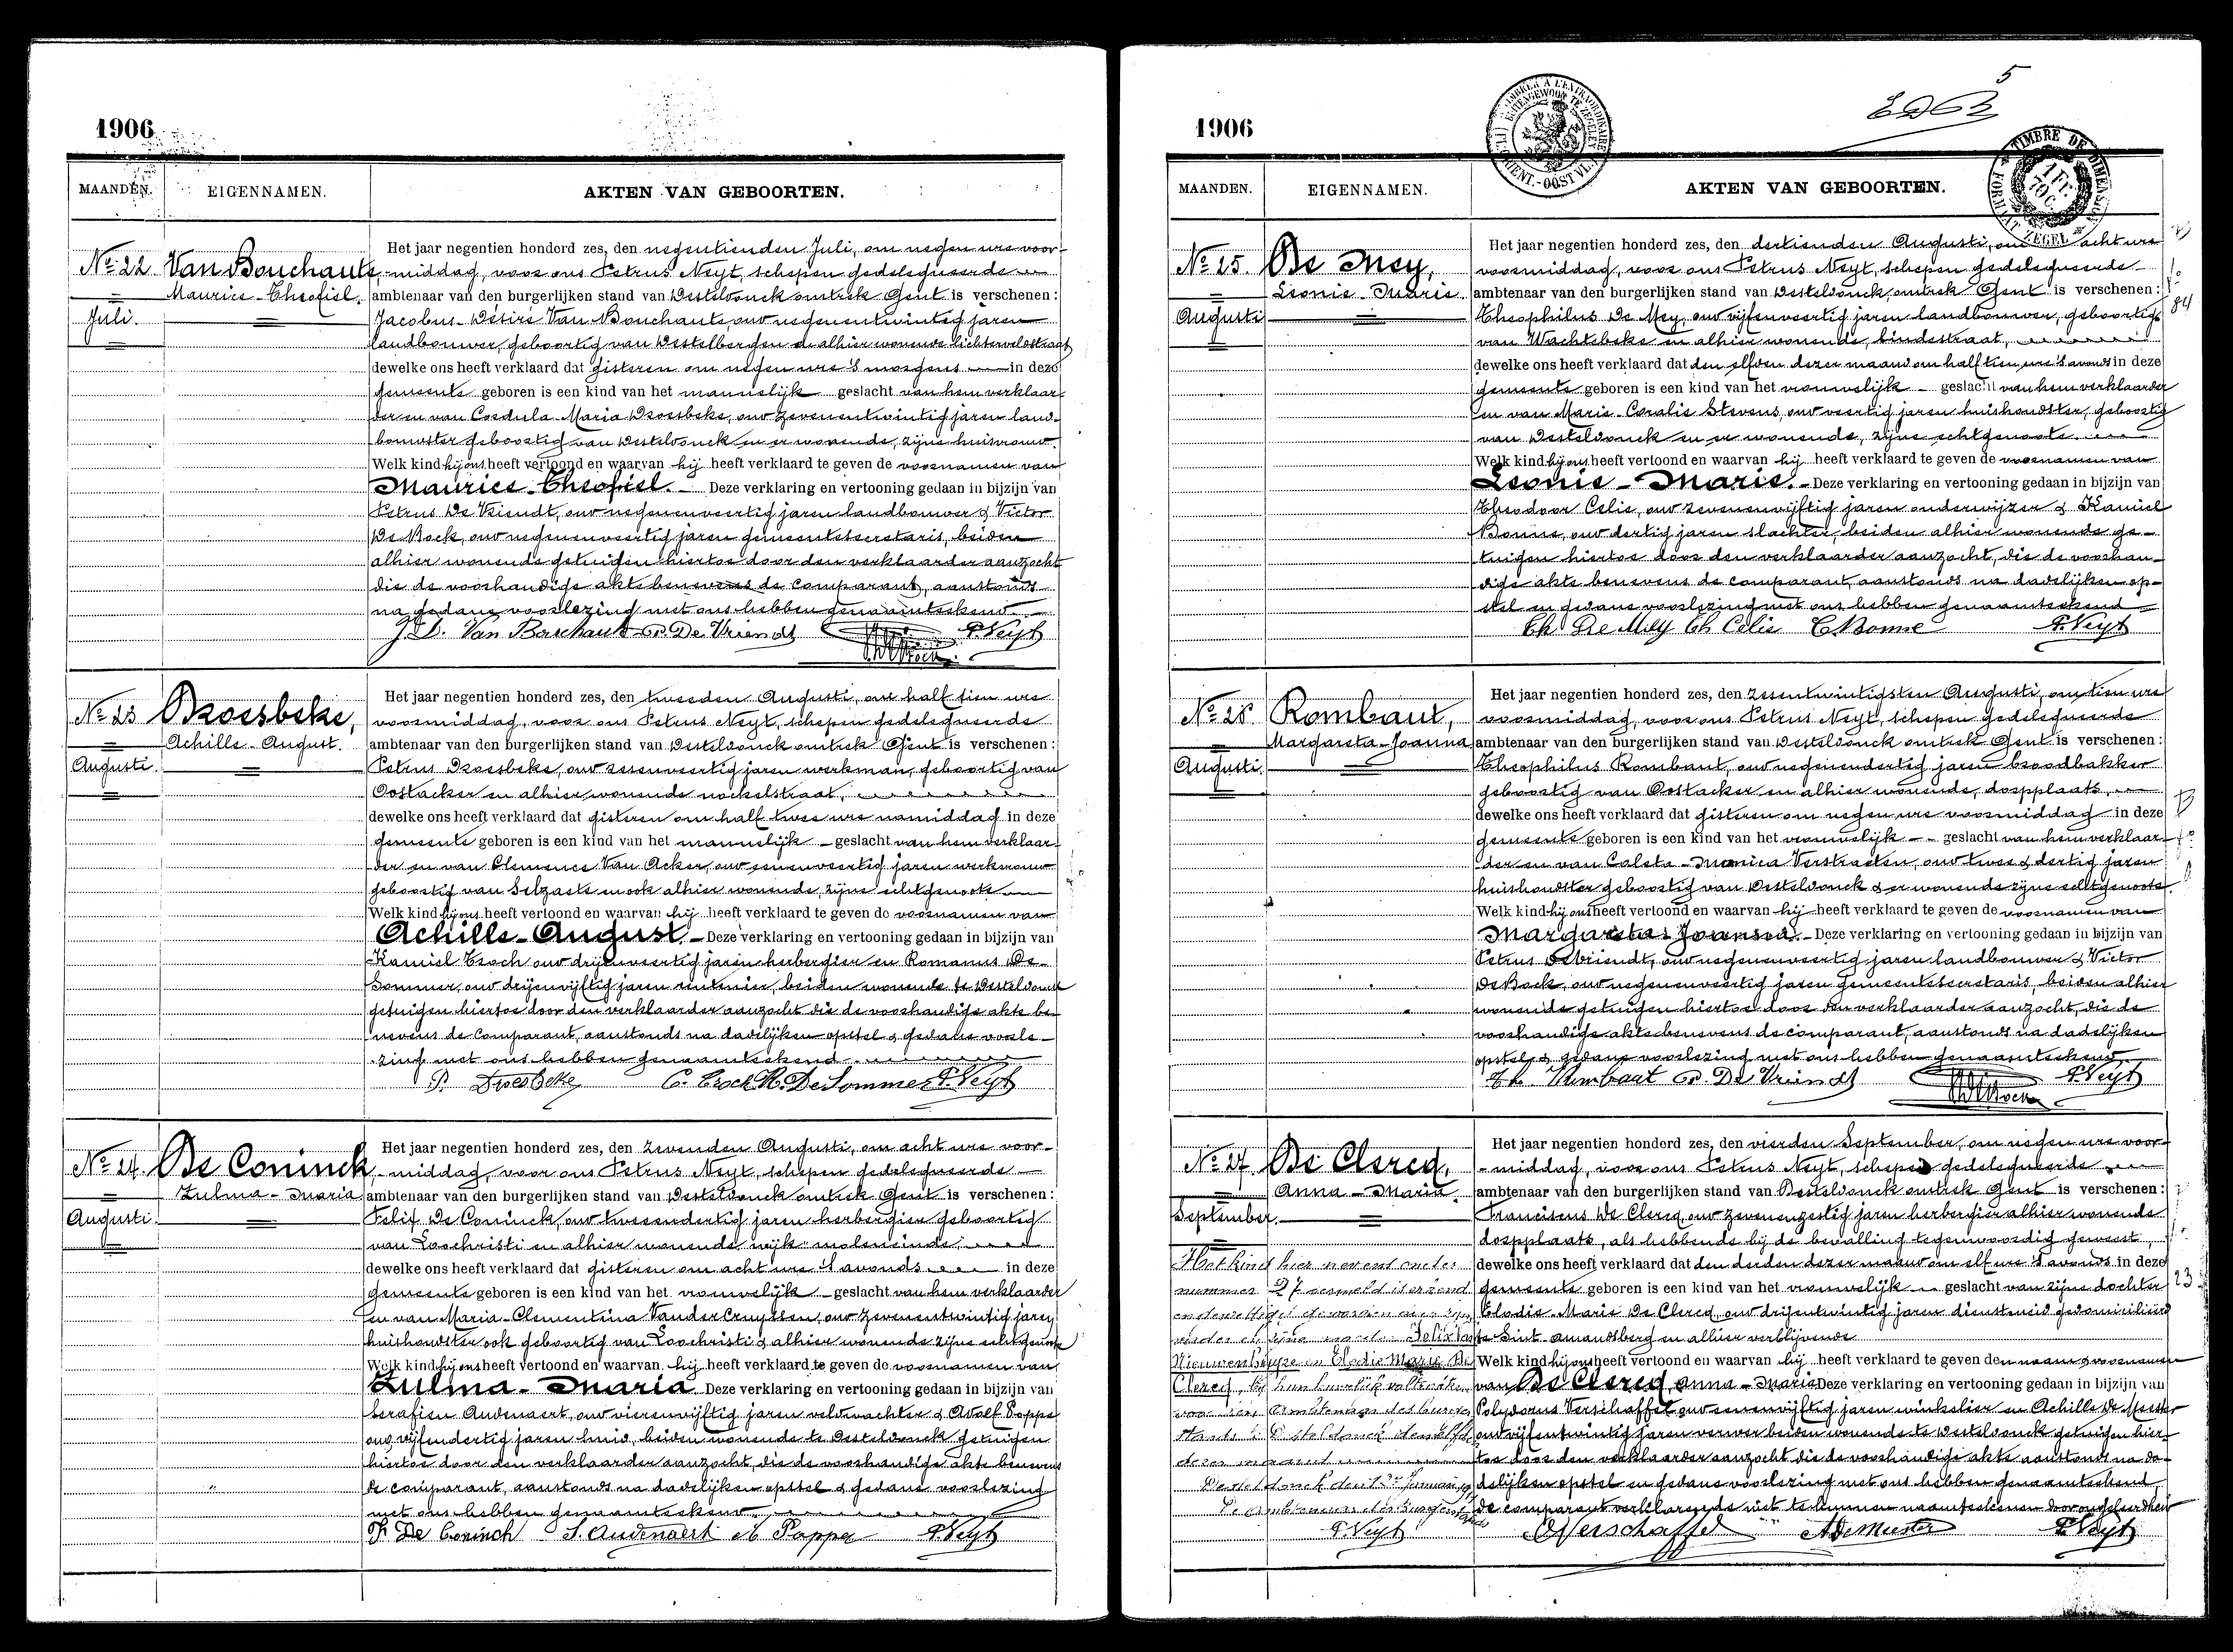 1906
MAANDEN. EIGENNAMEN. AKTEN VAN GEBOORTEN.
Nº 22 Van Bouchaute,
Maurice-Theofiel.
Juli.
Het jaar negentien honderd zes, den negentienden Juli, om negen ure voor-
-middag, voor ons Petrus Neyt, schepen gedelegueerde
ambtenaar van den burgerlijken stand van Desteldonck omtrek Gent is verschenen:
Jacobus-Désiré Van Bouchaute, oud negenentwintig jaren
landbouwer, geboortig van Destelbergen en alhier wonende lichterveldstraat
dewelke ons heeft verklaard dat gisteren om negen ure 's morgens in deze
gemeente geboren is een kind van het mannelijk geslacht van hem verklaar-
der en van Cordula-Maria Droesbeke, oud zevenentwintig jaren land-
bouwster geboortig van Desteldonck en er wonende, zijne huisvrouw.
Welk kind hij ons heeft vertoond en waarvan hij heeft verklaard te geven de voornamen van
Maurice-Theofiel. Deze verklaring en vertooning gedaan in bijzijn van
Petrus De Vriendt, oud negenenveertig jaren landbouwer & Victor
De Bock, oud negenenveertig jaren gemeentesecretaris, beiden
alhier wonende getuigen hiertoe door den verklaarder aanzocht
die de voorhandige akte benevens de comparant, aanstonds
na gedane voorlezing met ons hebben genaamteekend.
J. D. Van Bouchaute P. De Vriendt P. Neyt
Nº 23 Droesbeke,
Achille-August.
Augusti.
Het jaar negentien honderd zes, den tweeden Augusti, om half tien ure
voormiddag, voor ons Petrus Neyt, schepen gedelegueerde
ambtenaar van den burgerlijken stand van Desteldonck omtrek Gent is verschenen:
Petrus Droesbeke, oud zesenveertig jaren werkman, geboortig van
Oostacker en alhier wonende nockelstraat,
dewelke ons heeft verklaard dat gisteren om half twee ure namiddag in deze
gemeente geboren is een kind van het mannelijk geslacht van hem verklaar-
der en van Clemence Van Acker, oud eenenveertig jaren werkvrouw
geboortig van Selzaete en ook alhier wonende, zijne echtgenoote
Welk kind hij ons heeft vertoond en waarvan hij heeft verklaard te geven de voornamen van
Achille-August. Deze verklaring en vertooning gedaan in bijzijn van
Kamiel Croch oud drijenveertig jaren herbergier en Romanus De-
Sommer, oud drijenvijftig jaren rentenier, beiden wonende te Desteldonck
getuigen hiertoe door den verklaarder aanzocht die de voorhandige akte be-
nevens de comparant, aanstonds na dadelijken opstel & gedane voorle-
zing met ons hebben genaamteekend.
P. Droesbeke C. Croch R. De Sommer P. Neyt
Nº 24 De Coninck,
Zulma-Maria
Augusti.
Het jaar negentien honderd zes, den zevenden Augusti, om acht ure voor-
-middag, voor ons Petrus Neyt, schepen gedelegueerde
ambtenaar van den burgerlijken stand van Desteldonck omtrek Gent is verschenen:
Felix De Coninck, oud tweeendertig jaren herbergier geboortig
van Loochristi en alhier wonende wijk moleneinde,
dewelke ons heeft verklaard dat gisteren om acht ure 's avonds in deze
gemeente geboren is een kind van het vrouwelijk geslacht van hem verklaarder
en van Maria-Clementina Vander Cruyssen, oud zevenentwintig jaren
huishoudster ook geboortig van Loochristi & alhier wonende zijne echtgenoote
Welk kind hij ons heeft vertoond en waarvan hij heeft verklaard te geven de voornamen van
Zulma-Maria Deze verklaring en vertooning gedaan in bijzijn van
Serafien Audenaert, oud vierenvijftig jaren veldwachter & Adolf Poppe
oud vijfendertig jaren smid, beiden wonende te Desteldonck getuigen
hiertoe door den verklaarder aanzocht, die de voorhandige akte benevens
de comparant, aanstonds na dadelijken opstel & gedane voorlezing
met ons hebben genaamteekend.
F. De Coninck S. Audenaert A Poppe P. Neyt
1906
5
MAANDEN. EIGENNAMEN. AKTEN VAN GEBOORTEN.
TIMBRE DE DIMENSION
1 Fr.
Nº 25 De Mey,
Leonie-Marie.
Augusti
Het jaar negentien honderd zes, den dertienden Augusti, om acht ure
voormiddag, voor ons Petrus Neyt, schepen gedelegueerde
ambtenaar van den burgerlijken stand van Desteldonck, omtrek Gent is verschenen:
Theophilus De Mey, oud vijfenveertig jaren landbouwer, geboortig
van Wachtebeke en alhier wonende, lindestraat,
dewelke ons heeft verklaard dat den elfden dezer maand om half tien ure 's avonds in deze
gemeente geboren is een kind van het vrouwelijk geslacht van hem verklaarder
en van Marie-Coralie Stevens, oud veertig jaren huishoudster, geboortig
van Desteldonck en er wonende, zijne echtgenoote.
Welk kind hij ons heeft vertoond en waarvan hij heeft verklaard te geven de voornamen van
Leonie-Marie. Deze verklaring en vertooning gedaan in bijzijn van
Theodoor Celie, oud zevenenvijftig jaren onderwijzer & Kamiel
Bonne, oud dertig jaren slachter, beiden alhier wonende ge-
tuigen hiertoe door den verklaarder aanzocht, die de voorhan-
dige akte benevens de comparant, aanstonds na dadelijken op-
stel en gedane voorlezing met ons hebben genaamteekend
Th De Mey Th Celie C Bonne P. Neyt
Nº 26 Rombaut,
Margareta-Joanna
Augusti.
Het jaar negentien honderd zes, den zesentwintigsten Augusti, om tien ure
voormiddag, voor ons Petrus Neyt, schepen gedelegueerde
ambtenaar van den burgerlijken stand van Desteldonck omtrek Gent is verschenen:
Theophilus Rombaut, oud negenendertig jaren broodbakker
geboortig van Oostacker en alhier wonende, dorpplaats,
dewelke ons heeft verklaard dat gisteren om negen ure voormiddag in deze
gemeente geboren is een kind van het vrouwelijk geslacht van hem verklaar-
der en van Coleta-Monica Verstraeten, oud twee & dertig jaren
huishoudster geboortig van Desteldonck & er wonende zijne echtgenoote.
Welk kind hij ons heeft vertoond en waarvan hij heeft verklaard te geven de voornamen van
Margareta-Joanna. Deze verklaring en vertooning gedaan in bijzijn van
Petrus Devriendt, oud negenenveertig jaren landbouwer & Victor
De Bock, oud negenenveertig jaren gemeentesecretaris, beiden alhier
wonende getuigen hiertoe door den verklaarder aanzocht, die de
voorhandige akte benevens de comparant, aanstonds na dadelijken
opstel & gedane voorlezing met ons hebben genaamteekend.
Th Rombaut P. De Vriendt P. Neyt
Nº 27 De Clercq,
Anna-Maria.
September.
Het kind hier nevens onder
nummer 27 vermeld is erkend
Felix Van
Nieuwenhuyze en Elodie Marie De
Clercq, bij hun huwelijk voltrokken
voor den Ambtenaar des burger
stands te Desteldonck den elfden
dezer maand
De ambtenaar des Burgerstands
P. Neyt
Het jaar negentien honderd zes, den vierden September, om negen ure voor-
-middag, voor ons Petrus Neyt, schepen gedelegueerde
ambtenaar van den burgerlijken stand van Desteldonck omtrek Gent is verschenen:
Franciscus De Clercq oud zevenenzestig jaren herbergier alhier wonende
dorpplaats, als hebbende bij de bevalling tegenwoordig geweest,
dewelke ons heeft verklaard dat den derden dezer maand om elf ure 's avonds in deze
gemeente geboren is een kind van het vrouwelijk geslacht van zijne dochter
Elodie-Marie De Clercq, oud drijentwintig jaren dienstmeid gedomicilieerd
te Sint-amandsberg en alhier verblijvende
Welk kind hij ons heeft vertoond en waarvan hij heeft verklaard te geven den naam & voornamen
van De Clercq Anna-Maria Deze verklaring en vertooning gedaan in bijzijn van
Polydorus Verschaffel oud eenenvijftig jaren winkelier en Achille De Meester
oud vijfentwintig jaren verwer beiden wonende te Desteldonck getuigen hier-
toe door den verklaarder aanzocht die de voorhandige akte aanstonds na da-
delijken opstel en gedane voorlezing met ons hebben genaamteekend,
de comparant verklarende niet te kunnen naamteekenen door ongeleerdheid
P Verschaffel A De Meester P. Neyt